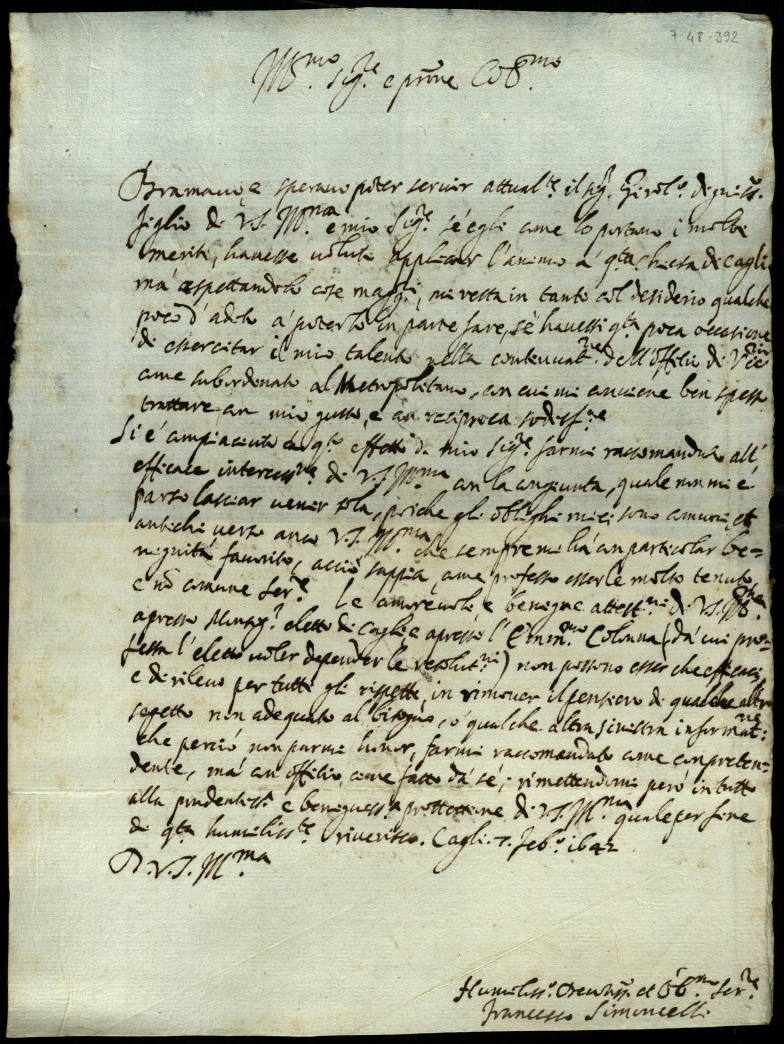 7-48-392
Ill.mo Sig.re e prone Col.mo
Bramavo, e speravo poter servir attual.te il sig.r Girol.o digniss.
figlio di V.S. Ill.ma e mio Sig.re s'egli come lo portano i molti
meriti, havesse voluto applicar l'animo à q.ta chiesa di Cagli
mà aspettandolo cose magg.ri, mi resta in tanto col desiderio qualche
poco d'adito à poterlo in parte fare, s'è havessi q.ta poca occasione
di essercitar il mio talento nella continuat.ne dell'offitio di Vic.rio
come subordinato al Metropolitano, con cui mi conviene ben spesso
trattare con mio gusto, e con reciproca sodisf.ne
Si è compiaciuto à q.to effetto il mio Sig.re farmi raccomandar all'
efficace intercess.ne di V.S. Ill.ma con la congiunta, quale non mi è
parso lasciar venir sola, poiche gli oblighi miei sono comuni, et
antichi verso anco V.S. Ill.ma che sempre mi hà con particolar be=
nignità favorito, acciò sappia, come professo esserle molto tenuto,
e nō comune ser.re Le amorevoli e benigne attest.ni di V.S. Ill.ma
apresso Monsig.r eletto di Cagli e apresso l'Emin.mo Colonna (dà cui pro=
fessa l'eletto voler depender le resolut.ni) non possono esser che efficaci,
e di rilevo per tutti gli rispetti, in rimover il pensiero di qualche altro
sogetto non adequato al bisogno, o qualche altra sinistra informat.ne
che perciò non parmi honor, farmi raccomandato come con preten=
dente, mà con offitio, come fatto dà sè; rimettendomi però in tutto
alla prudentiss.a e beneguiss.a prottettione di V.S. Ill.ma quale per fine
di q.ta humiliss.te riverisco. Cagli. 7. feb.o 1642
D. V. S. Ill.ma
Humiliss.o Devotiss. et Ob.mo Ser.re
Francesco Simoncelli